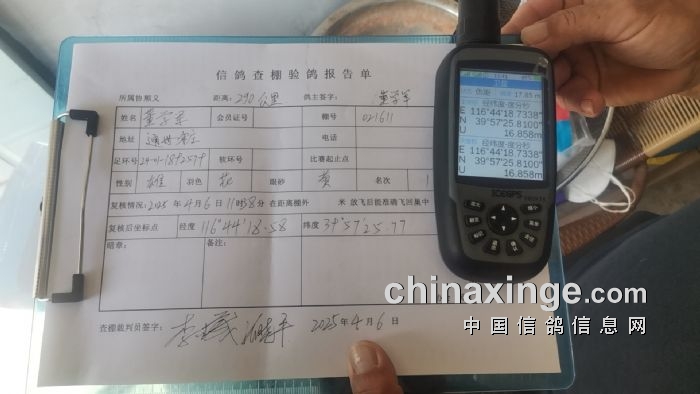 信鸽查棚验鸽报告单
所属协顺义 距离：290公里 鸽主签字：
姓名 会员证号 棚号 021611
地址 电话
足环号 24-01-1892579 软环号 比赛起止点
性别 雄 羽色 花 眼砂 黄 名次 1
复核情况：2025年4月6日11时58分 在距离棚外 米 放飞后能准确飞回集中
复核后坐标点 经度 116°44'18.58 纬度 39°57'25.77
暗章： 备注：
查棚裁判员签字： 2025年4月6日
17.85m
经纬度-度分秒
E 116°44'18.7338"
N 39°57'25.8100"
16.858m
经纬度-度分秒
E 116°44'18.7338"
N 39°57'25.8100"
16.858m
chinaxinge.com
中国信鸽信息网